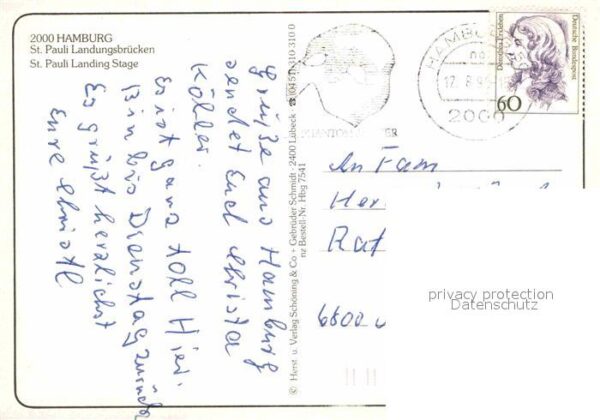 2000 HAMBURG
St. Pauli Landungsbrücken
St. Pauli Landing Stage
Grüße aus Hamburg
sendet Euch Christa
Köhler.
Es ist ganz toll hier.
Bin bis Dienstag zurück
Es grüßt herzlichst
Eure Christl
© Herst. u. Verlag Schöning & Co + Gebrüder Schmidt · 2400 Lübeck ☎ (0451) 310 310 0
nz Bestell-Nr. Hbg 7541
HAMBURG
17.8.9
2000
Dorothea Erxleben
Deutsche Bundespost
60
An Fam
Her
Rat
6800
privacy protection
Datenschutz